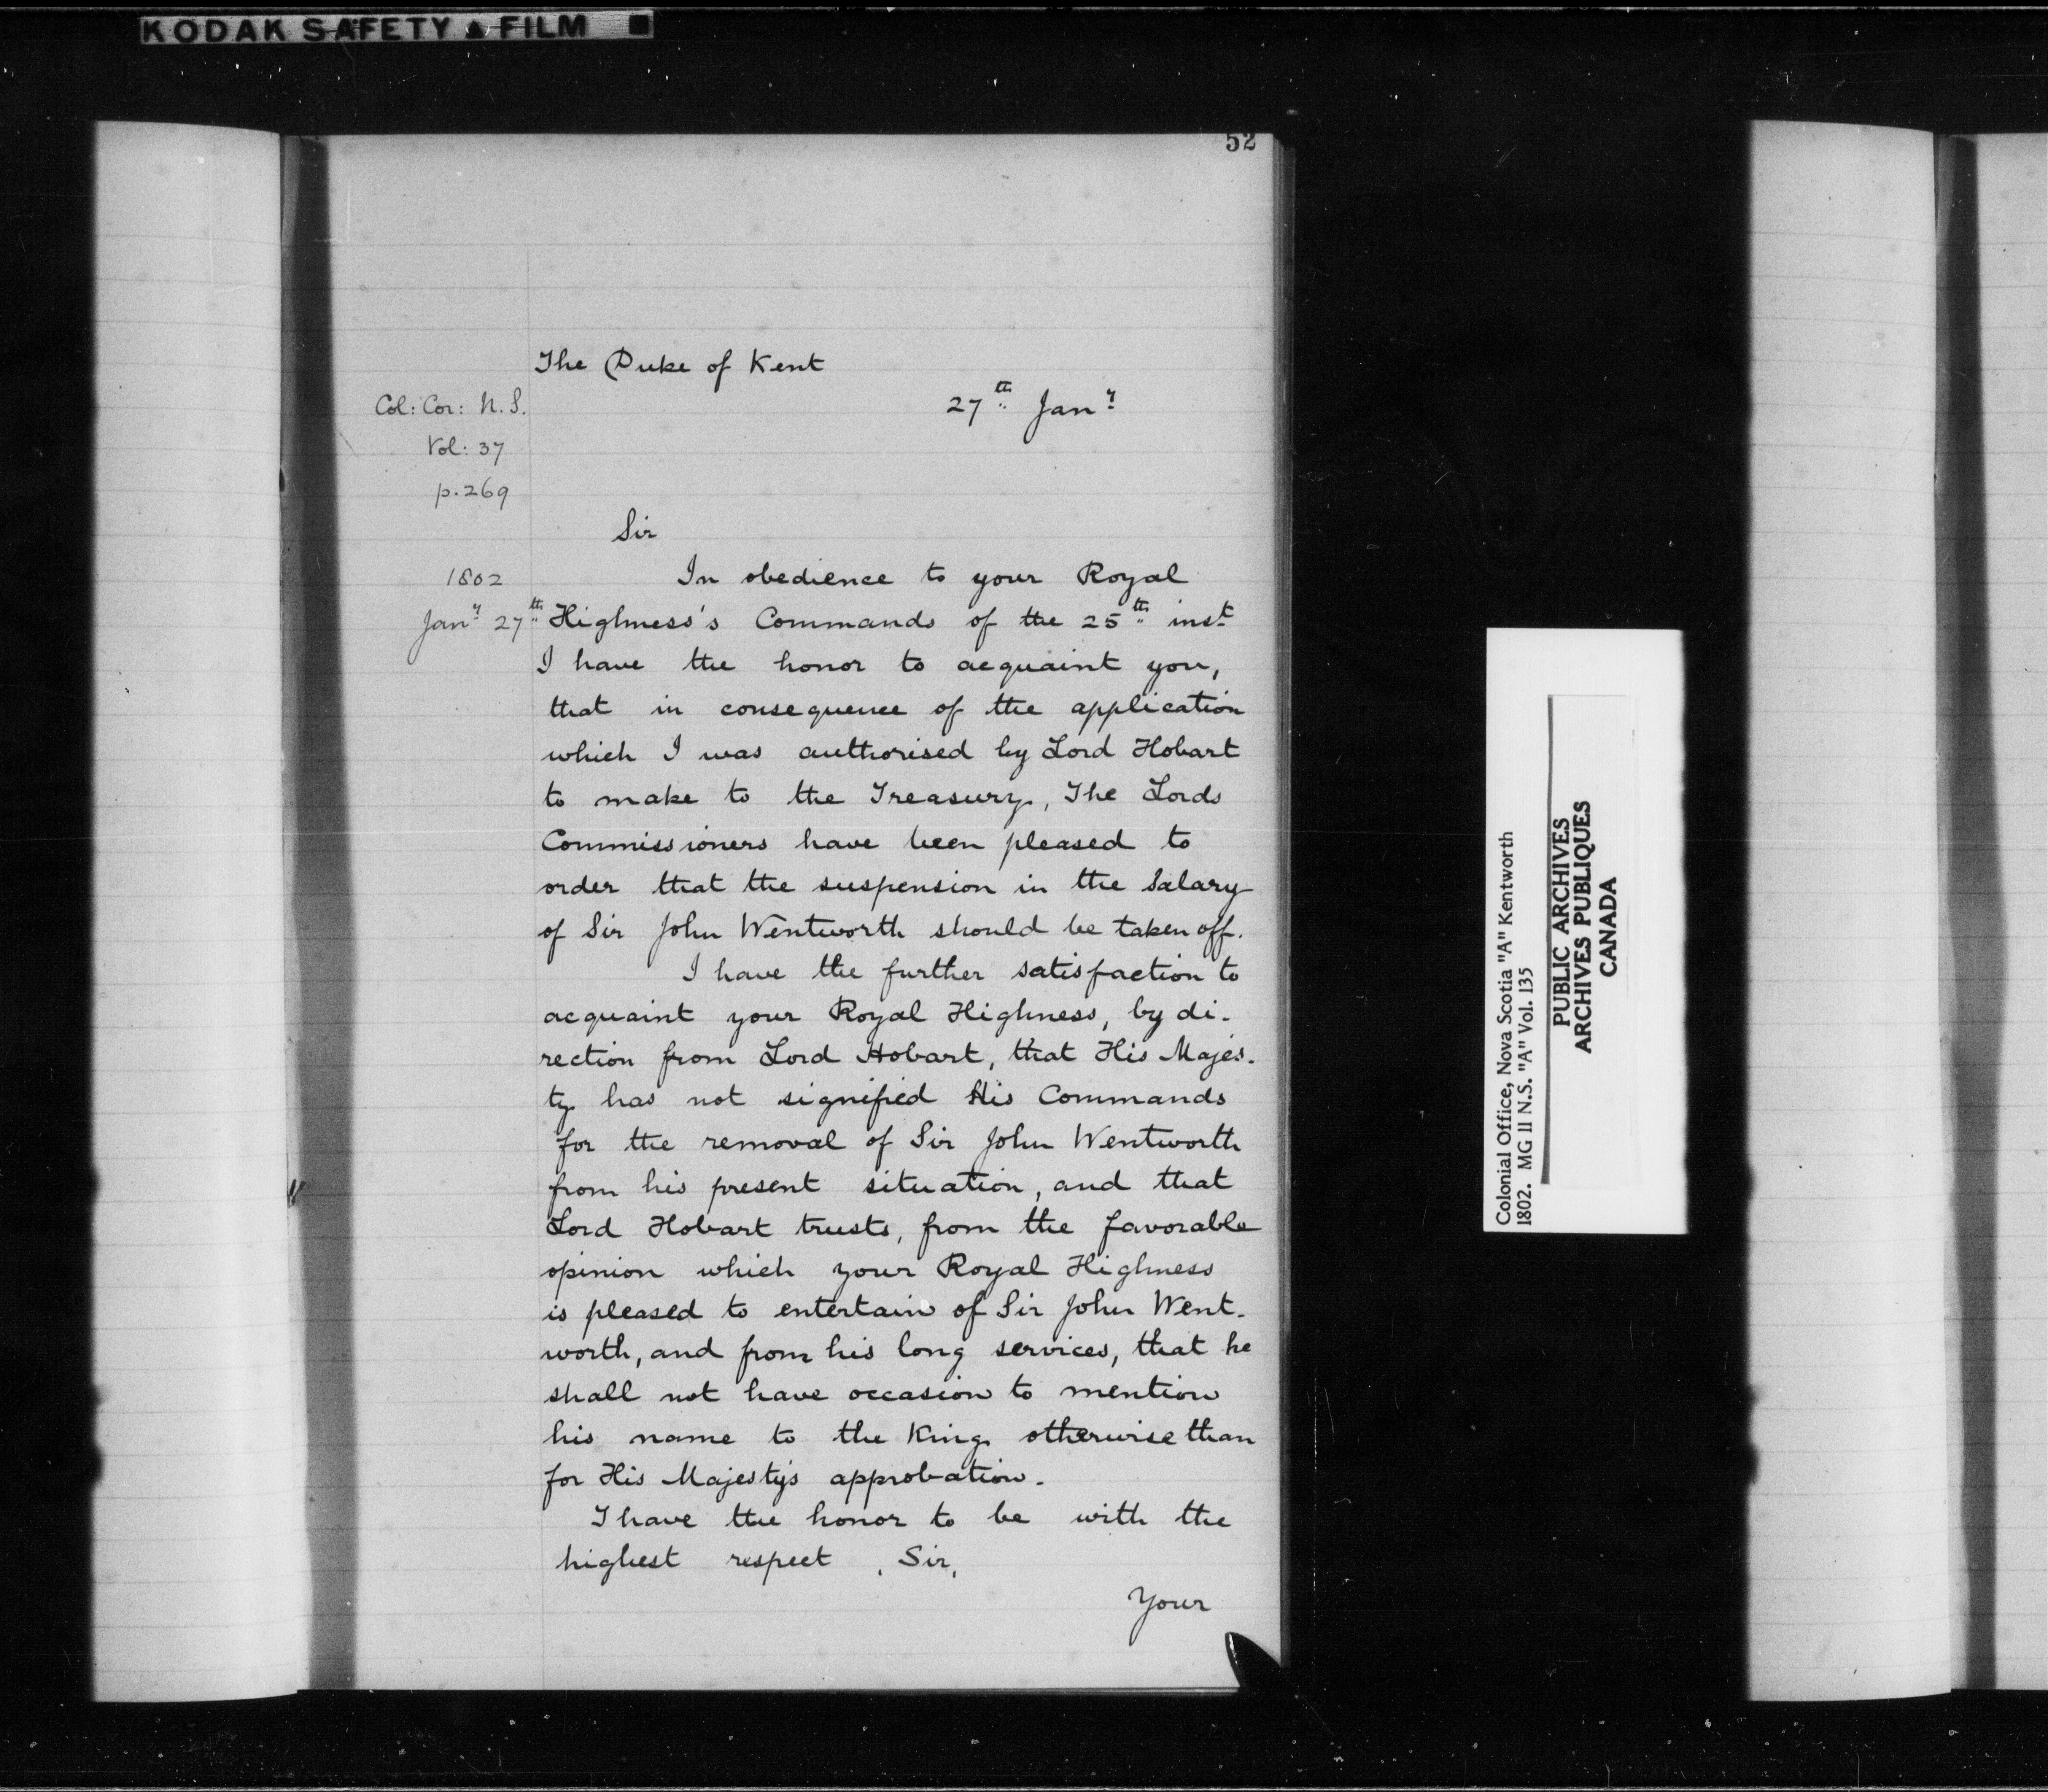 KODAK SAFETY ▲ FILM ■
52
The Duke of Kent
27th Jany
Col: Cor: N.S.
Vol: 37
p. 269
Sir
1802
Jany 27th
In obedience to your Royal
Highness's Commands of the 25th inst
I have the honor to acquaint you,
that in consequence of the application
which I was authorised by Lord Hobart
to make to the Treasury, The Lords
Commissioners have been pleased to
order that the suspension in the Salary
of Sir John Wentworth should be taken off.
I have the further satisfaction to
acquaint your Royal Highness, by di-
rection from Lord Hobart, that His Majes-
ty has not signified His Commands
for the removal of Sir John Wentworth
from his present situation, and that
Lord Hobart trusts, from the favorable
opinion which your Royal Highness
is pleased to entertain of Sir John Went-
worth, and from his long services, that he
shall not have occasion to mention
his name to the King otherwise than
for His Majesty's approbation.
I have the honor to be with the
highest respect, Sir,
Your
Colonial Office, Nova Scotia "A" Kentworth
1802. MG 11 N.S. "A" Vol. 135
PUBLIC ARCHIVES
ARCHIVES PUBLIQUES
CANADA